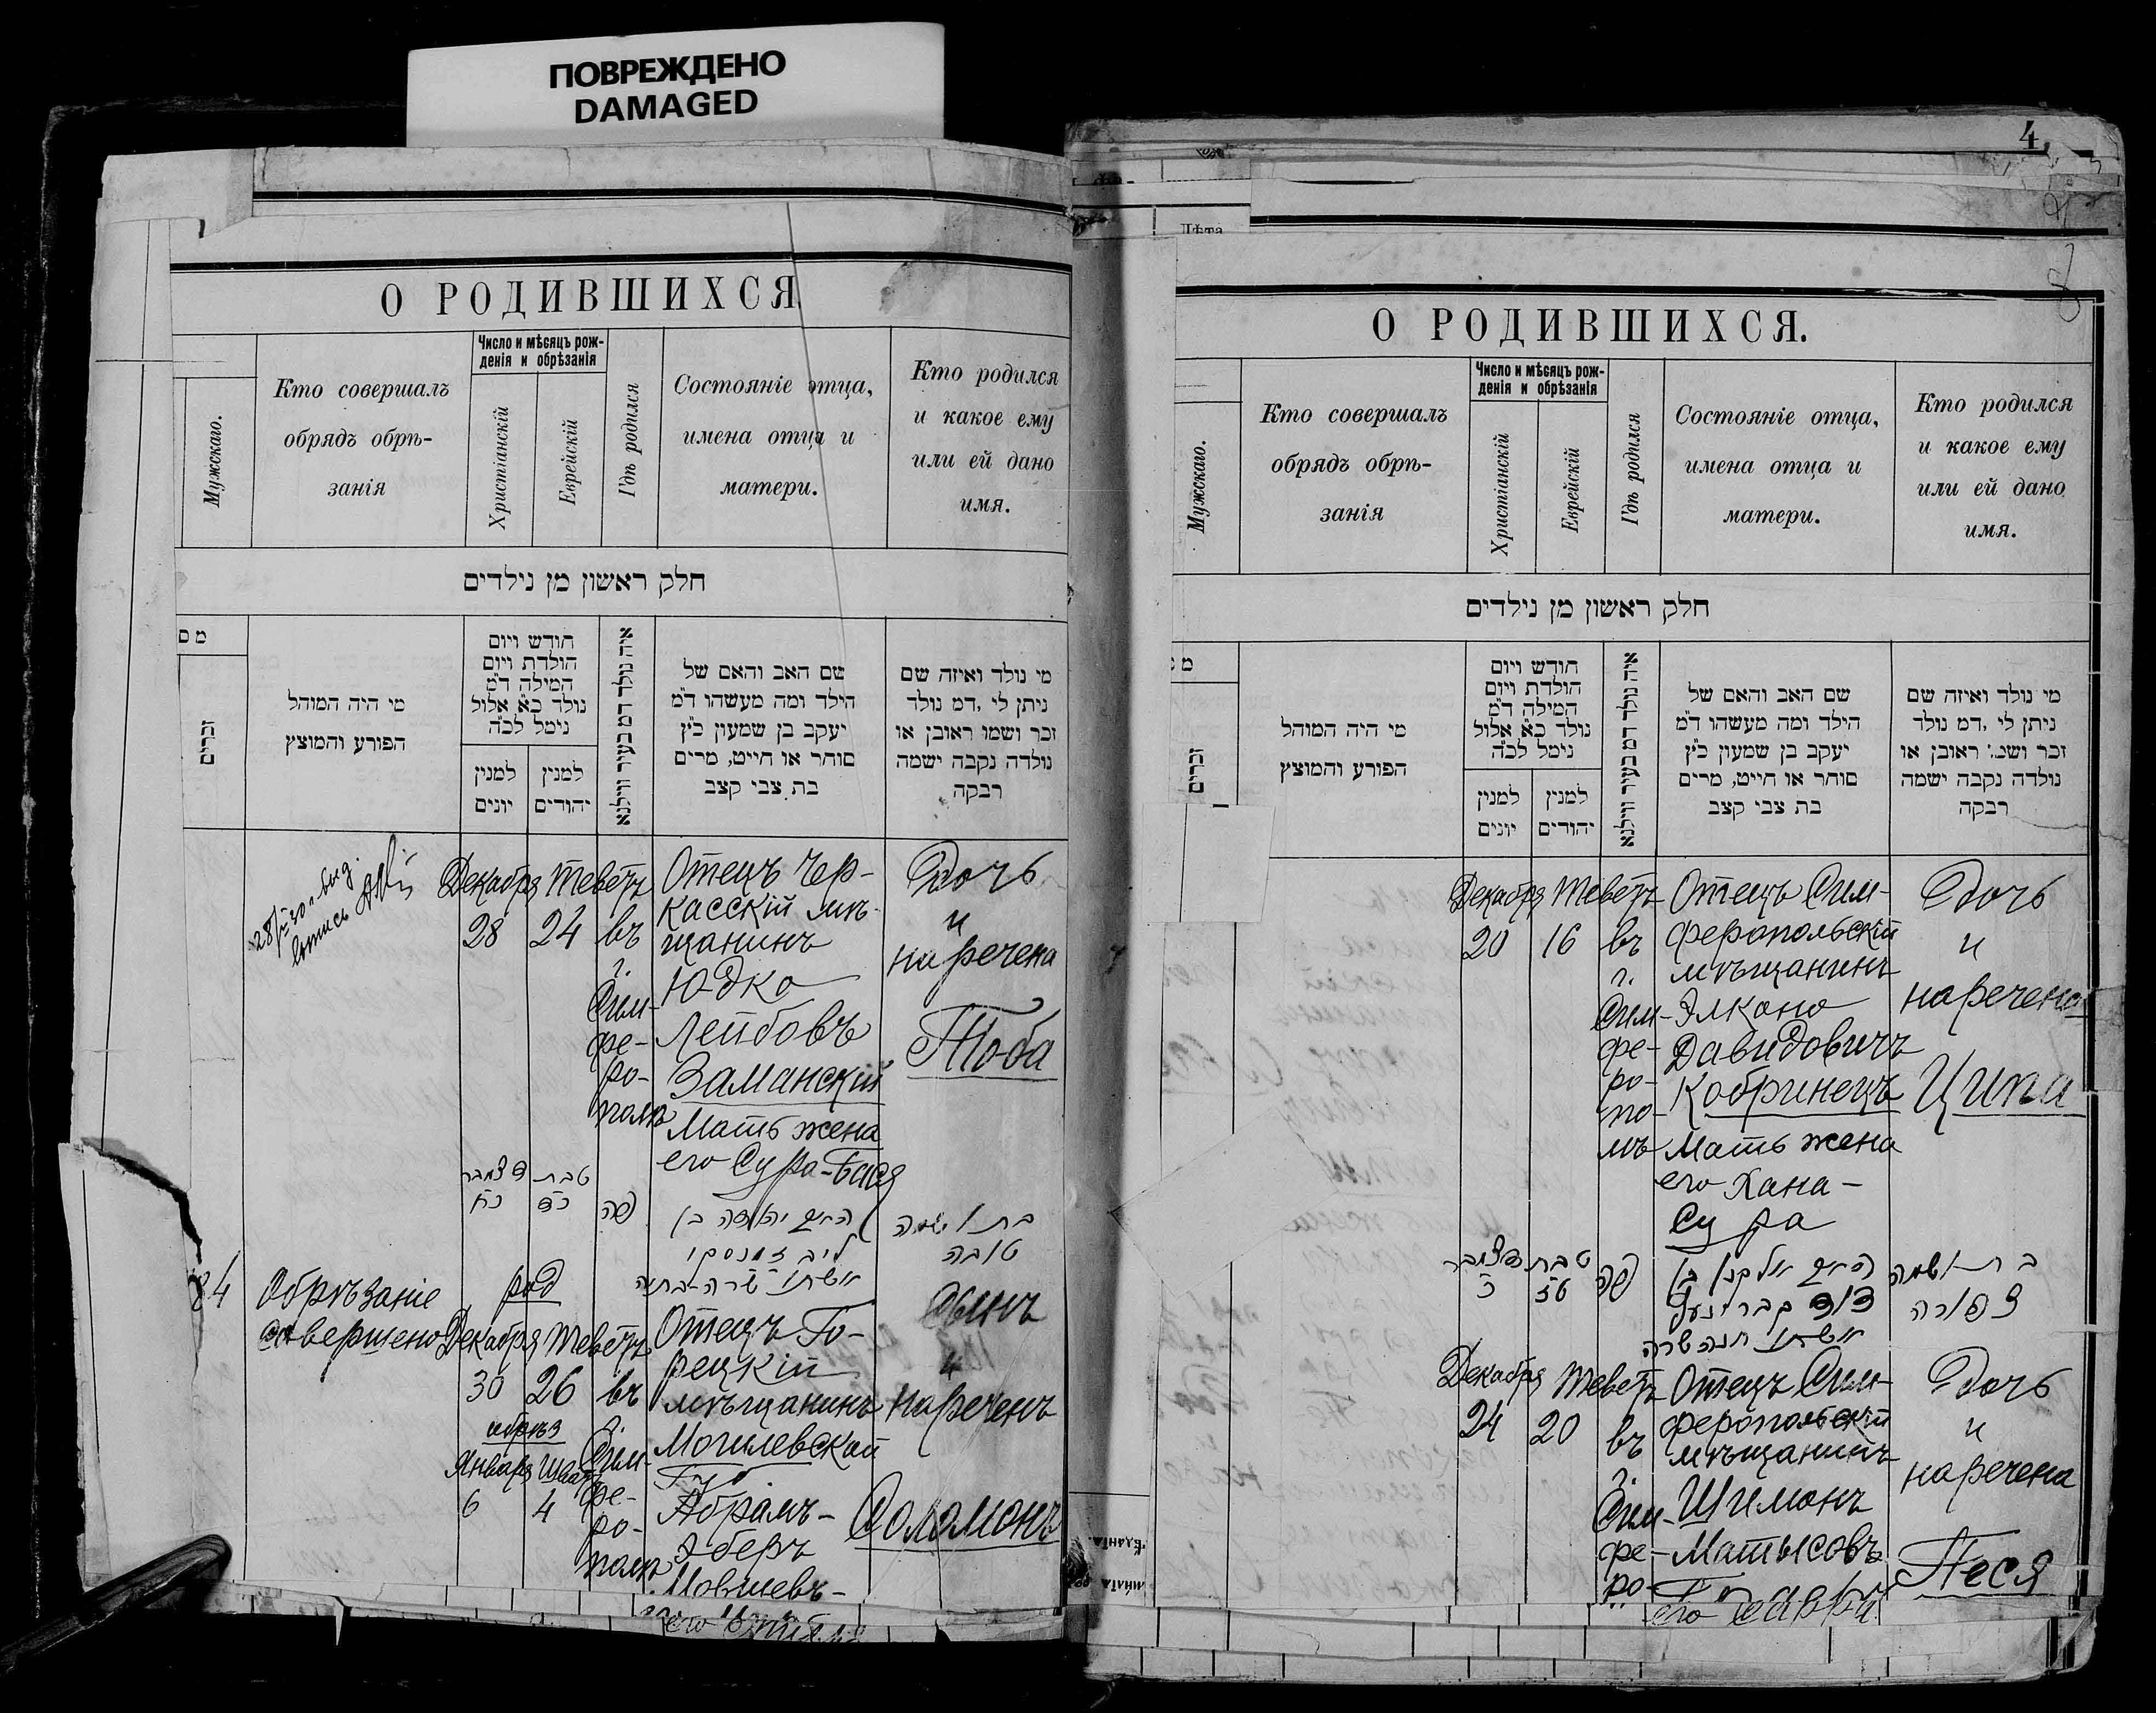 ПОВРЕЖДЕНО
DAMAGED
О РОДИВШИХСЯ
Мужскаго.
Кто совершалъ
обрядъ обрѣ-
занія
Число и мѣсяцъ рож-
денія и обрѣзанія
Христіанскій
Еврейскій
Гдѣ родился
Состояніе отца,
имена отца и
матери.
Кто родился
и какое ему
или ей дано
имя.
חלק ראשון מן נילדים
מס
זכרים
מי היה המוהל
הפורע והמוצץ
חודש ויום
הולדת ויום
המילה ד"מ
נולד כ"א אלול
נימל לכ"ה
למנין
יונים
למנין
יהודים
איה נולד דמ בעיר ווילנא
שם האב והאם של
הילד ומה מעשהו ד"מ
יעקב בן שמעון כ"ץ
סוחר או חייט, מרים
בת צבי קצב
מי נולד ואיזה שם
ניתן לי ,דמ נולד
זכר ושמו ראובן או
נולדה נקבה ישמה
רבקה
Декабря
28
Теветъ
24
въ
г.
Сим-
фе-
ро-
полѣ
Отецъ Чер-
касскій мѣ-
щанинъ
Юдко
Лейбовъ
Заманскій
Мать жена
его Сура-Бася
Дочь
и
наречена
Тоба
דצמבר
כח
טבת
כד
פה
האיש יהודה בן
ליב זמנסקי
אשתו שרה-בתיה
בת ושמה
טובה
84
Обрѣзаніе
совершено
род
Декабря
30
Теветъ
26
обрѣз
Января
6
Шватъ
4
въ
г.
Сим-
фе-
ро-
полѣ
Отецъ Го-
рецкій
мѣщанинъ
Могилевской
Гу
Абрамъ-
Эберъ
Мовшевъ-
Сынъ
и
нареченъ
Соломонъ
4
О РОДИВШИХСЯ.
Лѣта
Мужскаго.
Кто совершалъ
обрядъ обрѣ-
занія
Число и мѣсяцъ рож-
денія и обрѣзанія
Христіанскій
Еврейскій
Гдѣ родился
Состояніе отца,
имена отца и
матери.
Кто родился
и какое ему
или ей дано
имя.
חלק ראשון מן נילדים
זכרים
מי היה המוהל
הפורע והמוצץ
חודש ויום
הולדת ויום
המילה ד"מ
נולד כ"א אלול
נימל לכ"ה
למנין
יונים
למנין
יהודים
איה נולד דמ בעיר ווילנא
שם האב והאם של
הילד ומה מעשהו ד"מ
יעקב בן שמעון כ"ץ
סוחר או חייט, מרים
בת צבי קצב
מי נולד ואיזה שם
ניתן לי ,דמ נולד
זכר ושמ: ראובן או
נולדה נקבה ישמה
רבקה
Декабря
20
Теветъ
16
въ
г.
Сим-
фе-
ро-
по-
лѣ
Отецъ Сим-
феропольскій
мѣщанинъ
Элконо
Давидовичъ
Кобринецъ
Мать жена
его Хана-
Сура
Дочь
и
наречена
Ципа
דצמבר
כ
טבת
טז
פה
האיש אלקנן בן
דוד קברינעץ
אשתו חנה שרה
בת ושמה
צפורה
Декабря
24
Теветъ
20
въ
г.
Сим-
фе-
ро-
Отецъ Сим-
феропольскій
мѣщанинъ
Шимонъ
Матысовъ
Дочь
и
наречена
Песя